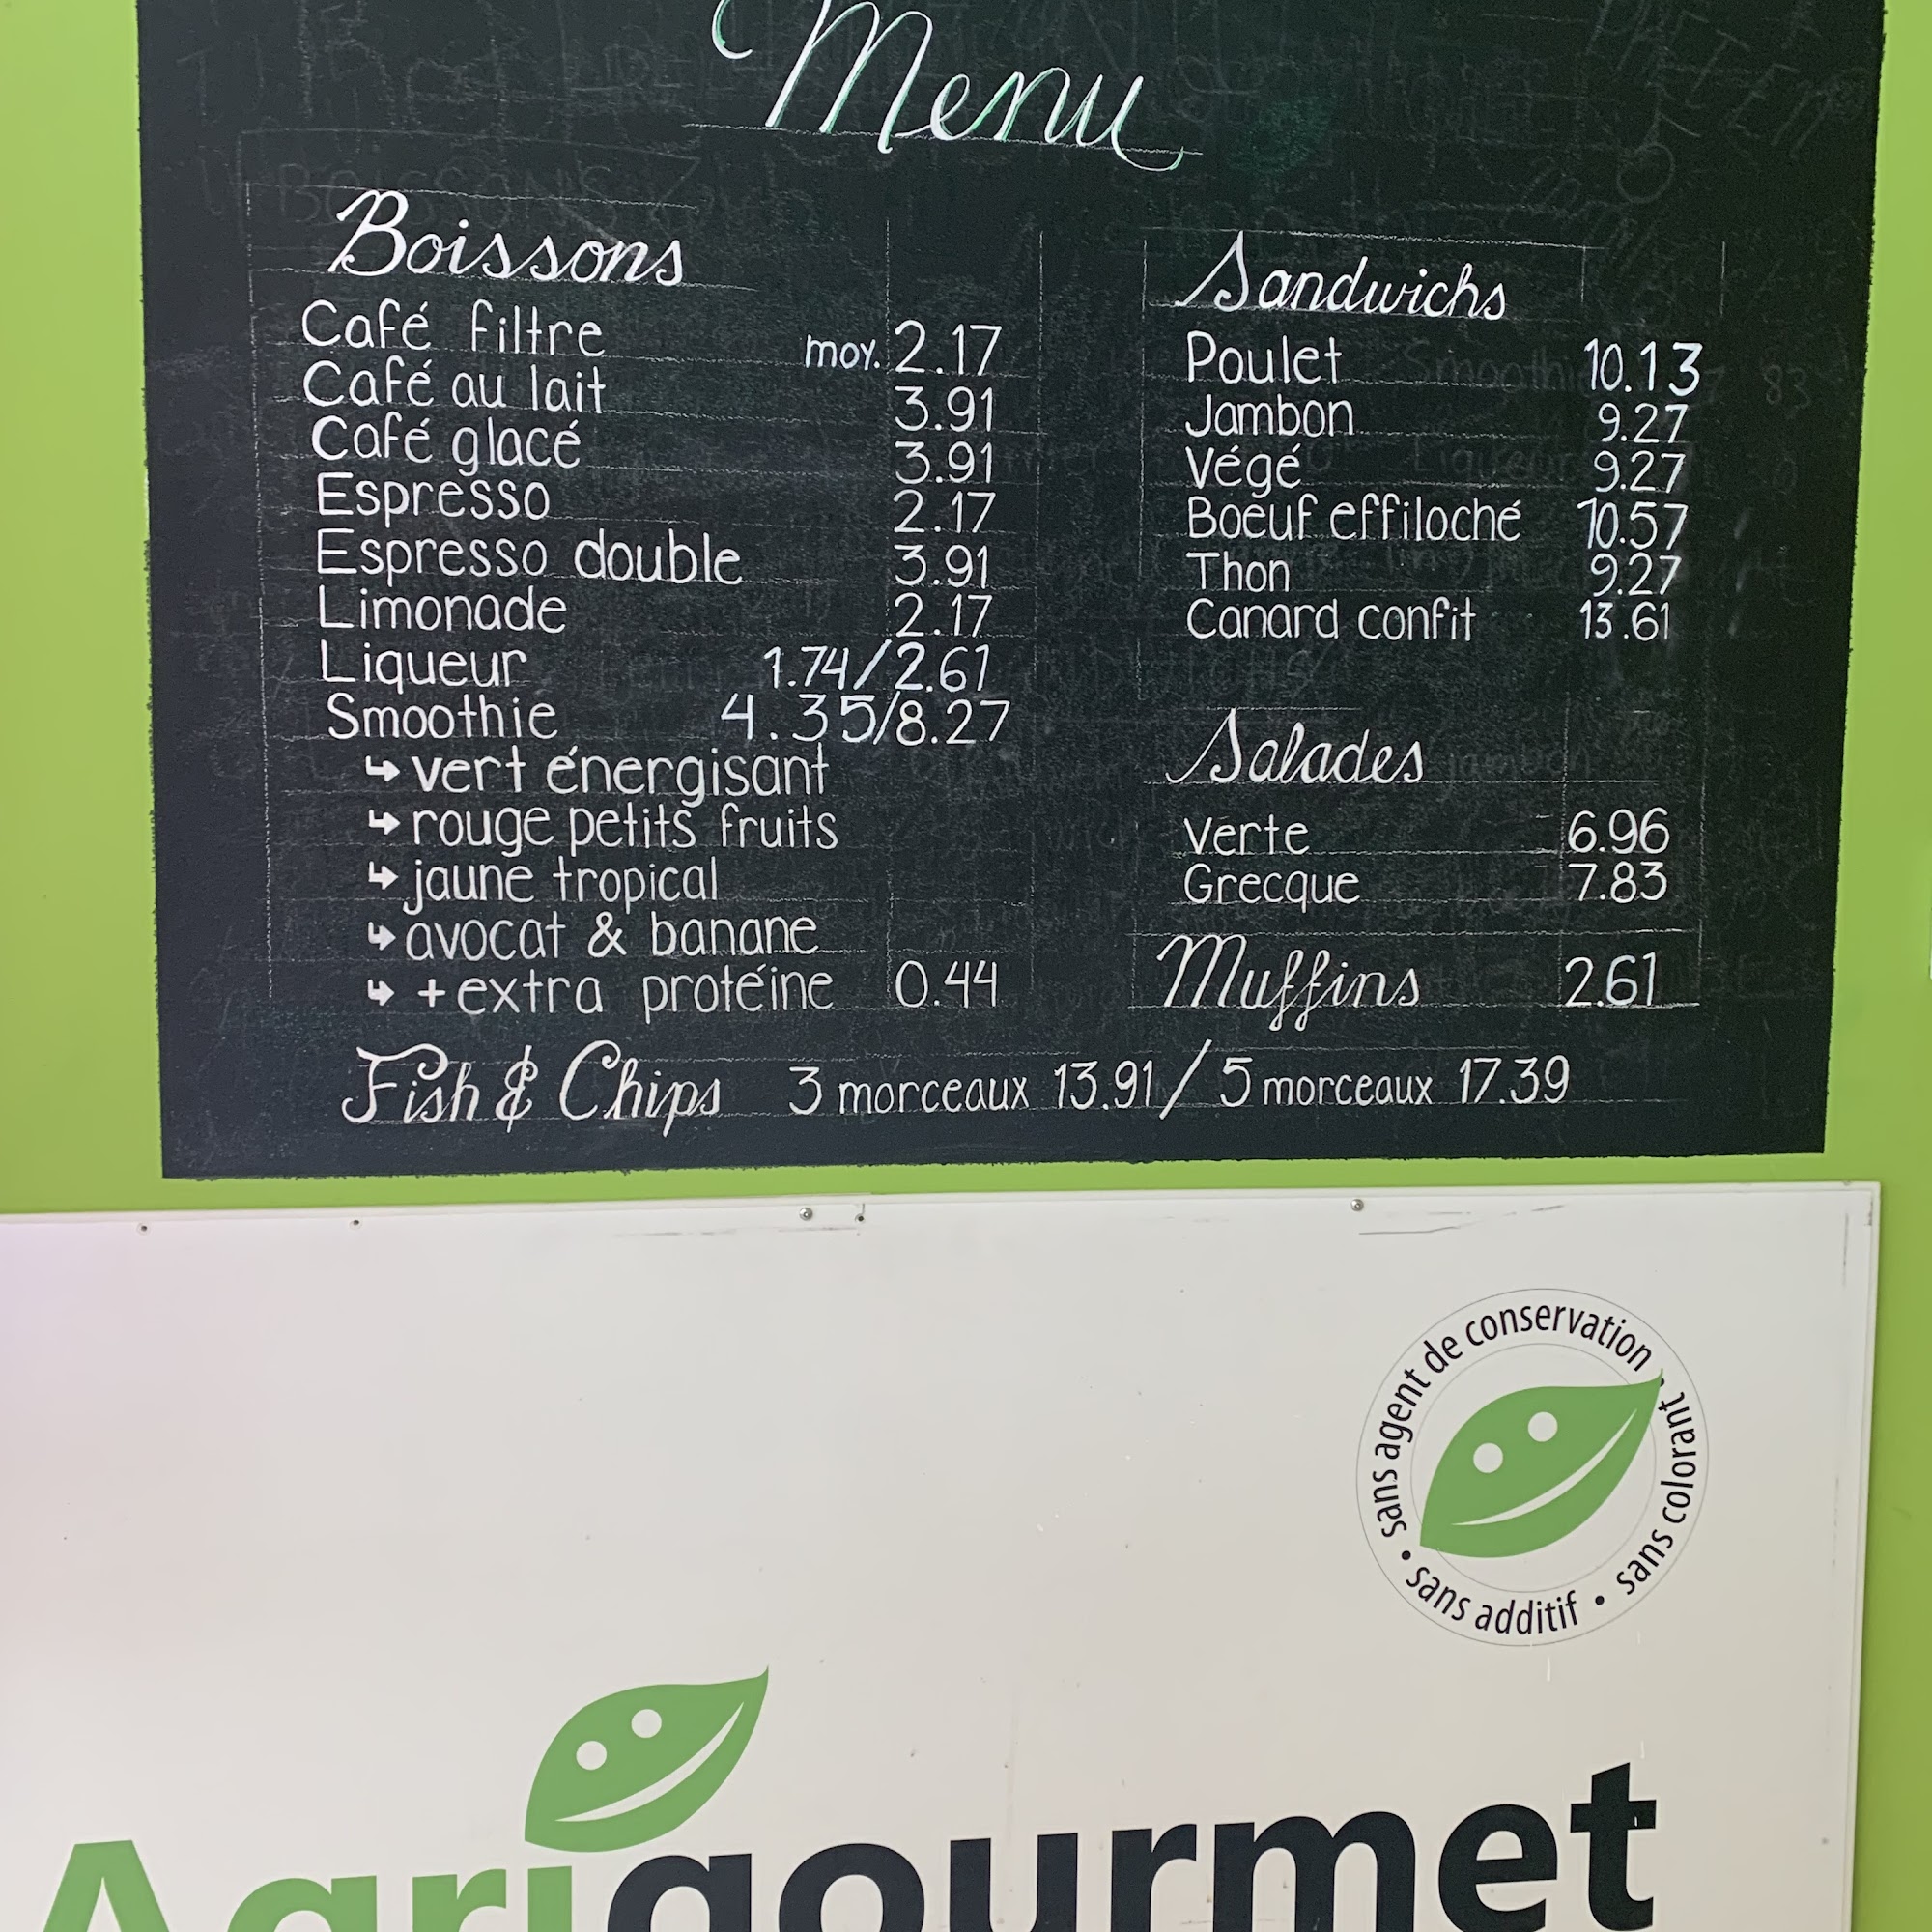 Menu
Boissons
Café filtre moy. 2.17
Café au lait 3.91
Café glacé 3.91
Espresso 2.17
Espresso double 3.91
Limonade 2.17
Liqueur 1.74/2.61
Smoothie 4.35/8.27
↳ vert énergisant
↳ rouge petits fruits
↳ jaune tropical
↳ avocat & banane
↳ + extra protéine 0.44
Sandwichs
Poulet 10.13
Jambon 9.27
Végé 9.27
Boeuf effiloché 10.57
Thon 9.27
Canard confit 13.61
Salades
Verte 6.96
Grecque 7.83
Muffins 2.61
Fish & Chips 3 morceaux 13.91 / 5 morceaux 17.39
sans agent de conservation • sans colorant • sans additif •
Agrigourmet